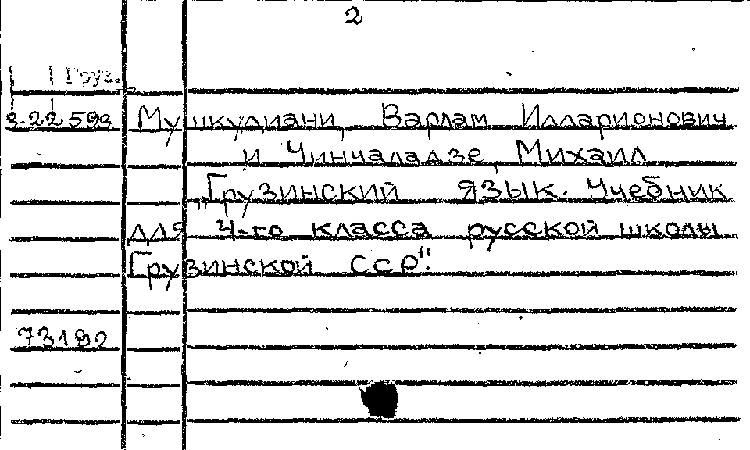 2
Груз.
Мушкудиани, Варлам Илларионович
и Чинчаладзе, Михаил
„Грузинский язык. Учебник
для 4-го класса русской школы
Грузинской ССР".
73192